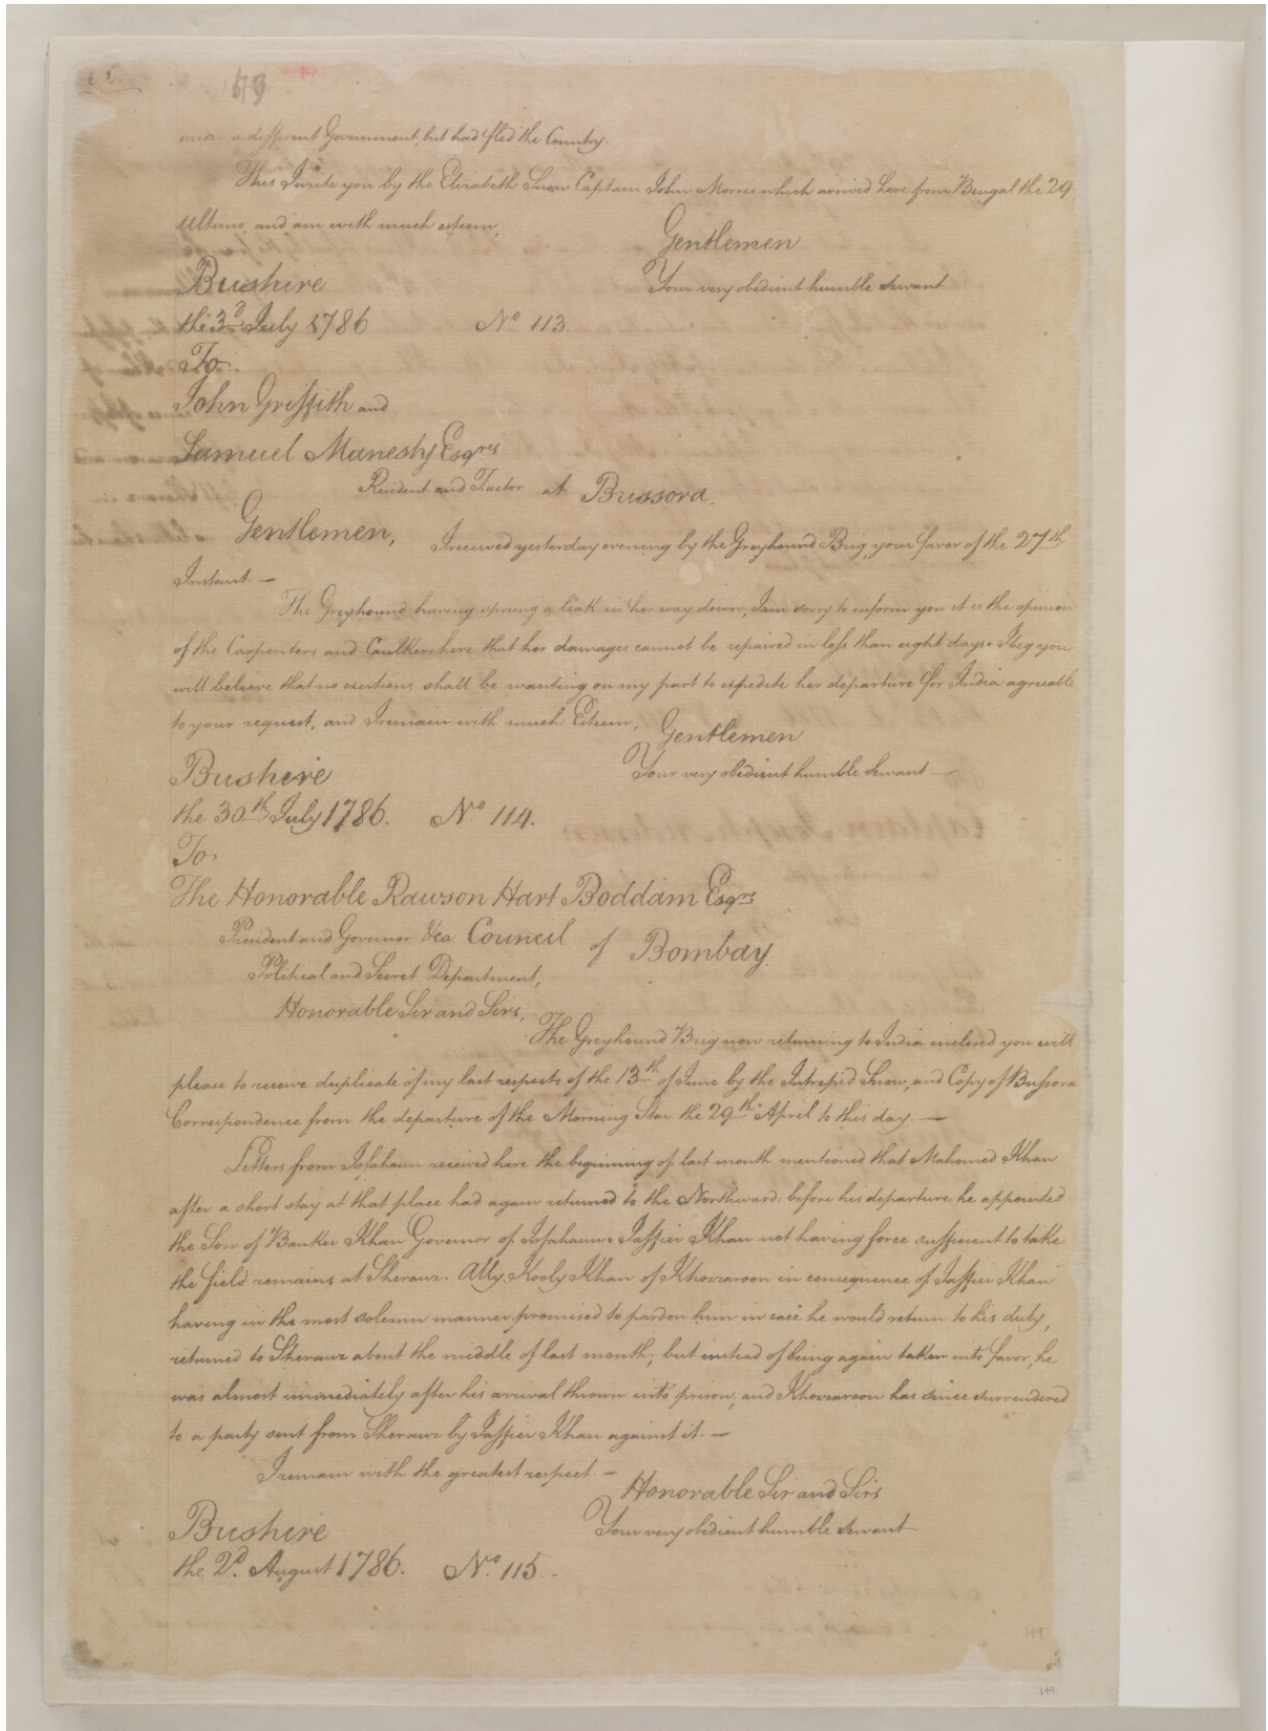 49
under a different Government, but had fled the Country.
This I write you by the Elizabeth Snow Captain John Morris which arrived here from Bengal the 29
Ultimo, and am with much esteem,
Gentlemen
Bushire
Your very obedient humble Servant
the 3d. July 1786 No 113
To
John Griffith and
Samuel Manesty Esqrs
Resident and Factor at Bussora.
Gentlemen, I received yesterday evening by the Greyhound Brig, your favor of the 27th
Instant. —
The Greyhound having sprung a leak in her way down, I am sorry to inform you it is the opinion
of the Carpenters and Caulkers here that her damages cannot be repaired in less than eight days. I beg you
will believe that no exertions shall be wanting on my part to expedite her departure for India agreeable
to your request, and I remain with much Esteem,
Gentlemen
Bushire
Your very obedient humble Servant —
the 30th July 1786. No 114.
To
The Honorable Rawson Hart Boddam Esqrs
President and Governor &ca Council of Bombay.
Political and Secret Department,
Honorable Sir and Sirs,
The Greyhound Brig now returning to India inclosed you will
please to receive duplicate of my last respects of the 13th of June by the Intrepid Snow, and Copy of Bussora
Correspondence from the departure of the Morning Star the 29th April to this day. —
Letters from Isfahaun received here the beginning of last month mentioned that Mahomed Khan
after a short stay at that place had again returned to the Northward: before his departure he appointed
the Son of Bauker Khan Governor of Isfahaun. Jaffier Khan not having force sufficient to take
the field remains at Sherauz. Ally Kooly Khan of Khozaroon in consequence of Jaffier Khan
having in the most solemn manner promised to pardon him in case he would return to his duty,
returned to Sherauz about the middle of last month; but instead of being again taken into favor, he
was almost immediately after his arrival thrown into prison, and Khozaroon has since surrendered
to a party sent from Sherauz by Jaffier Khan against it. —
I remain with the greatest respect. —
Honorable Sir and Sirs
Bushire
Your very obedient humble Servant
the 2d. August 1786. No. 115.
149
149